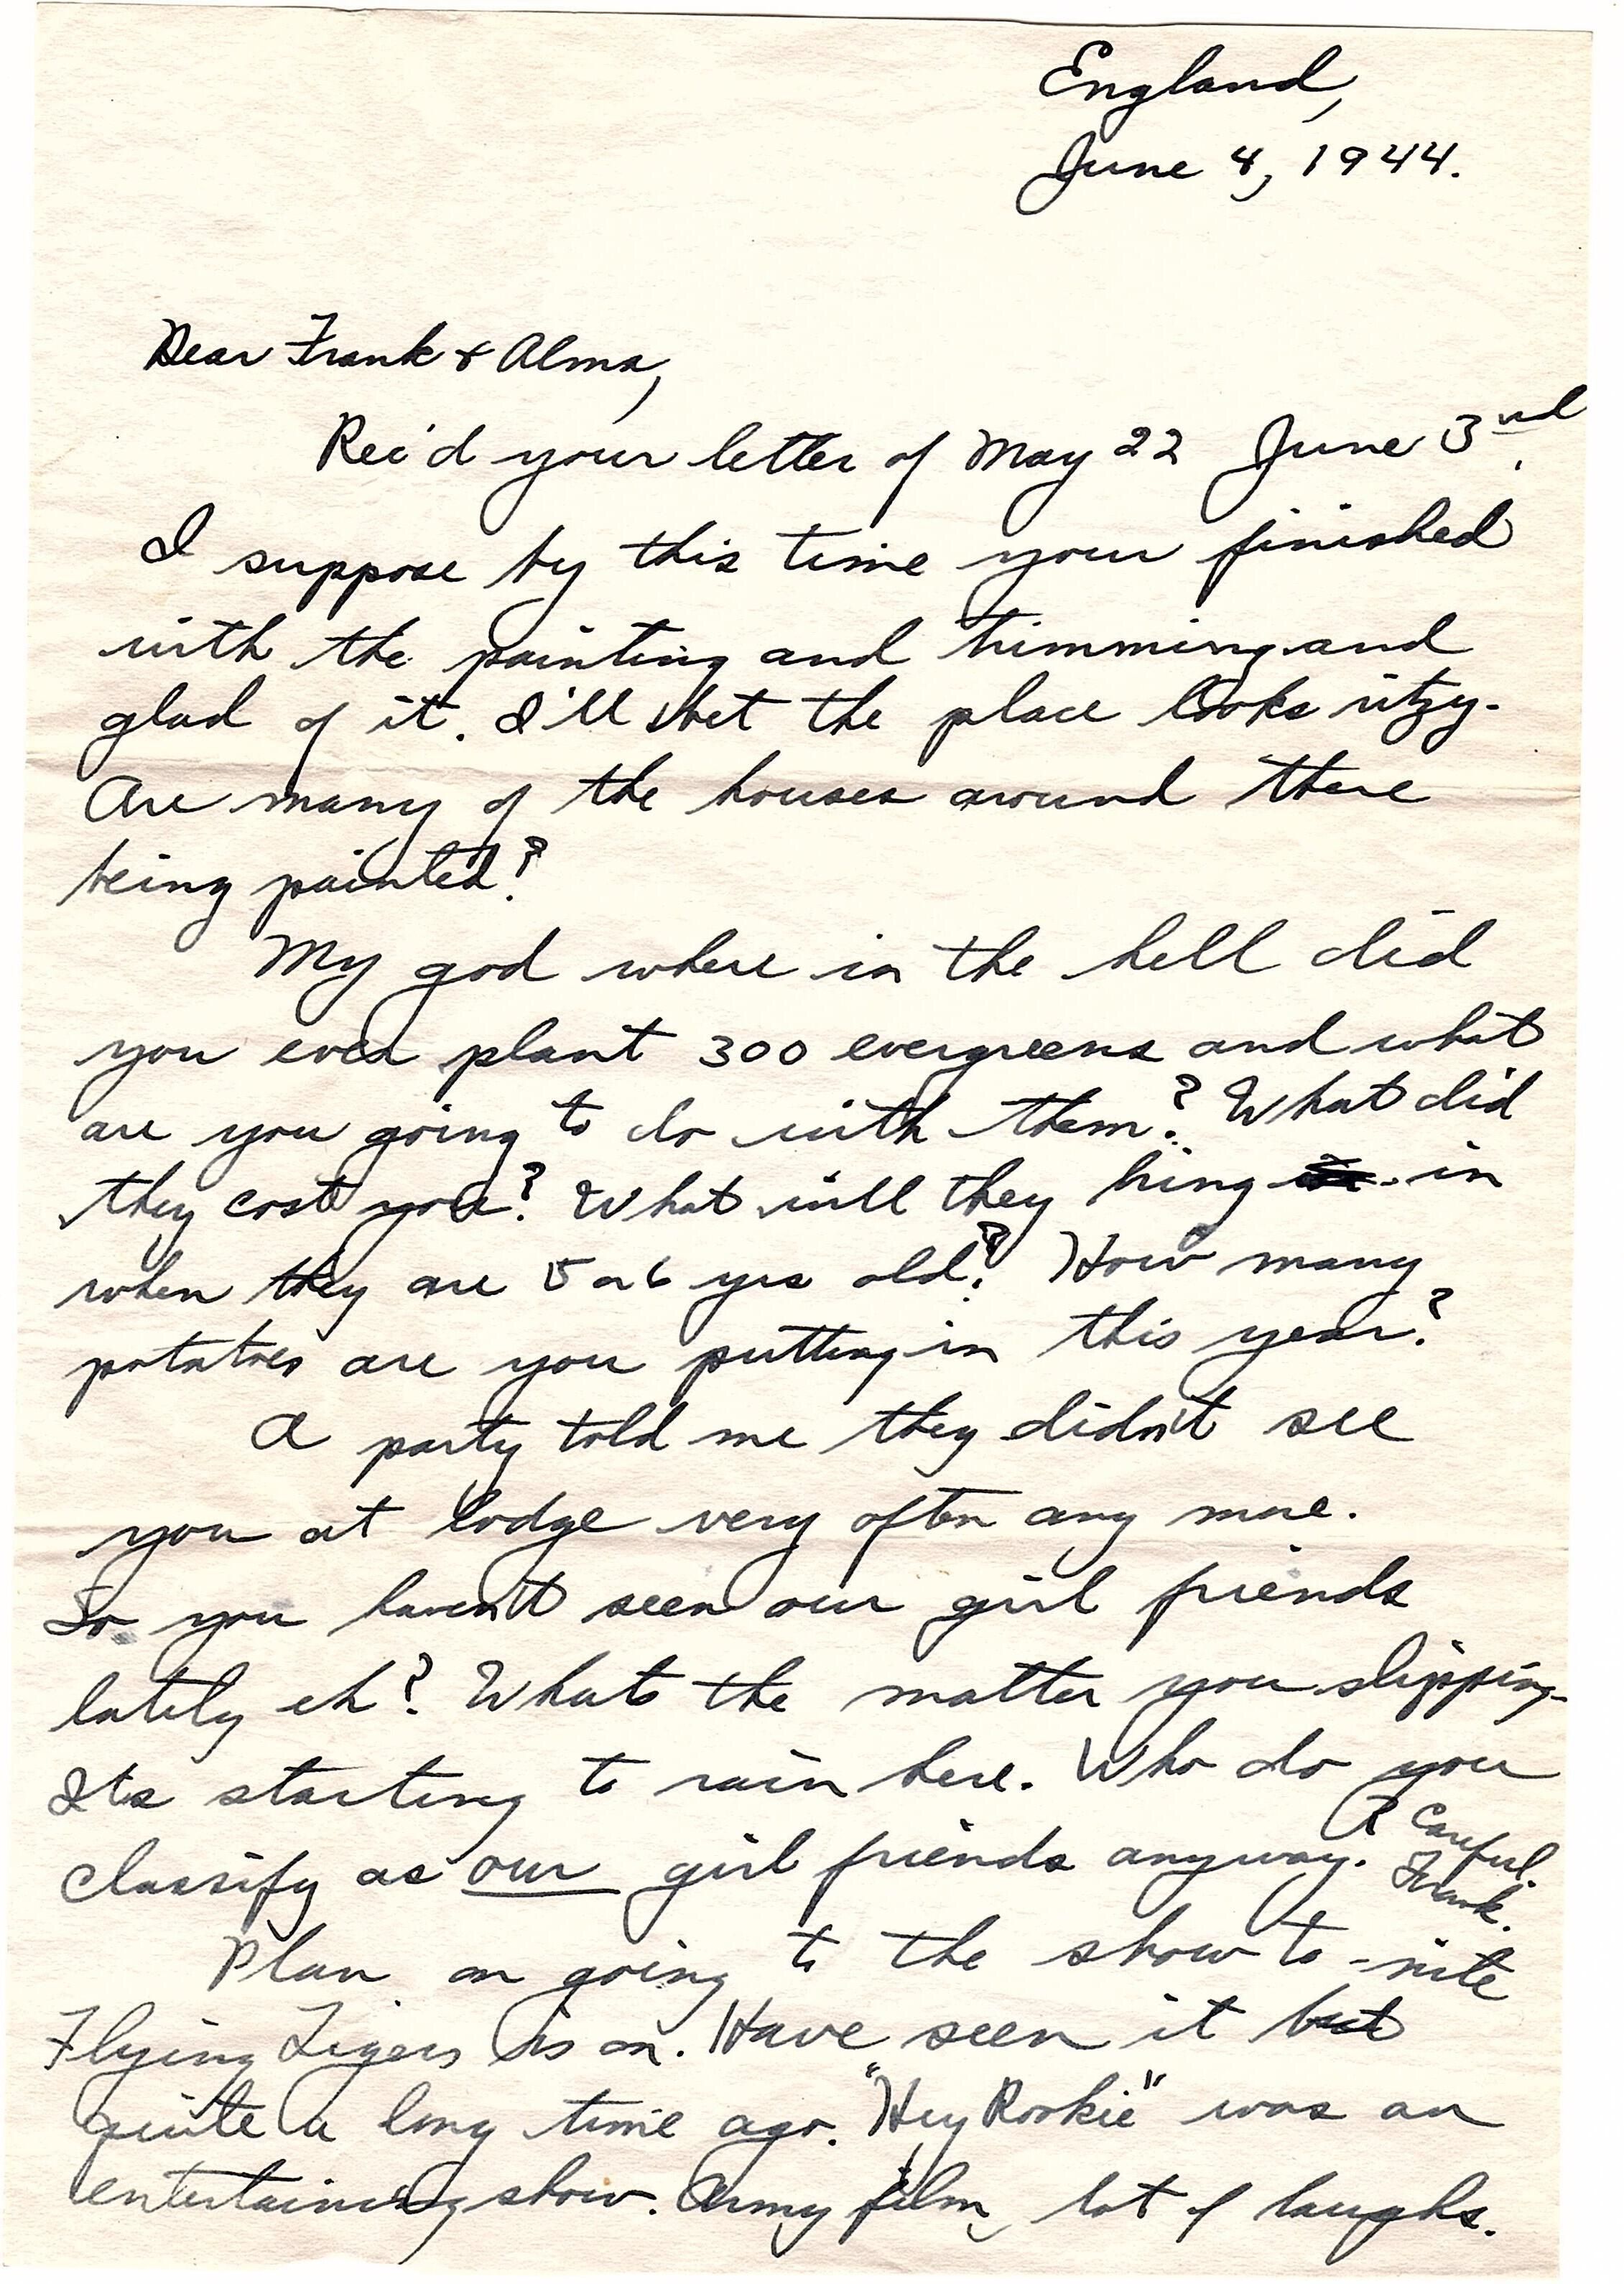 England,
June 4, 1944.
Dear Frank & Alma,
Rec'd your letter of May 22 June 3rd.
I suppose by this time your finished
with the painting and trimming and
glad of it. I'll bet the place looks ritzy.
Are many of the houses around there
being painted?
My god where in the hell did
you ever plant 300 evergreens and what
are you going to do with them? What did
they cost you? What will they bring in
when they are 5 or 6 yrs old? How many
potatoes are you putting in this year?
A party told me they didn't see
you at lodge very often any more.
So you haven't seen our girl friends
lately eh? Whats the matter you slipping.
Its starting to rain here. Who do you
classify as our girl friends anyway. ? Careful.
Frank.
Plan on going to the show to-nite
Flying Tigers is on. Have seen it but
quite a long time ago. "Hey Rookie" was an
entertaining show. Army film, lot of laughs.